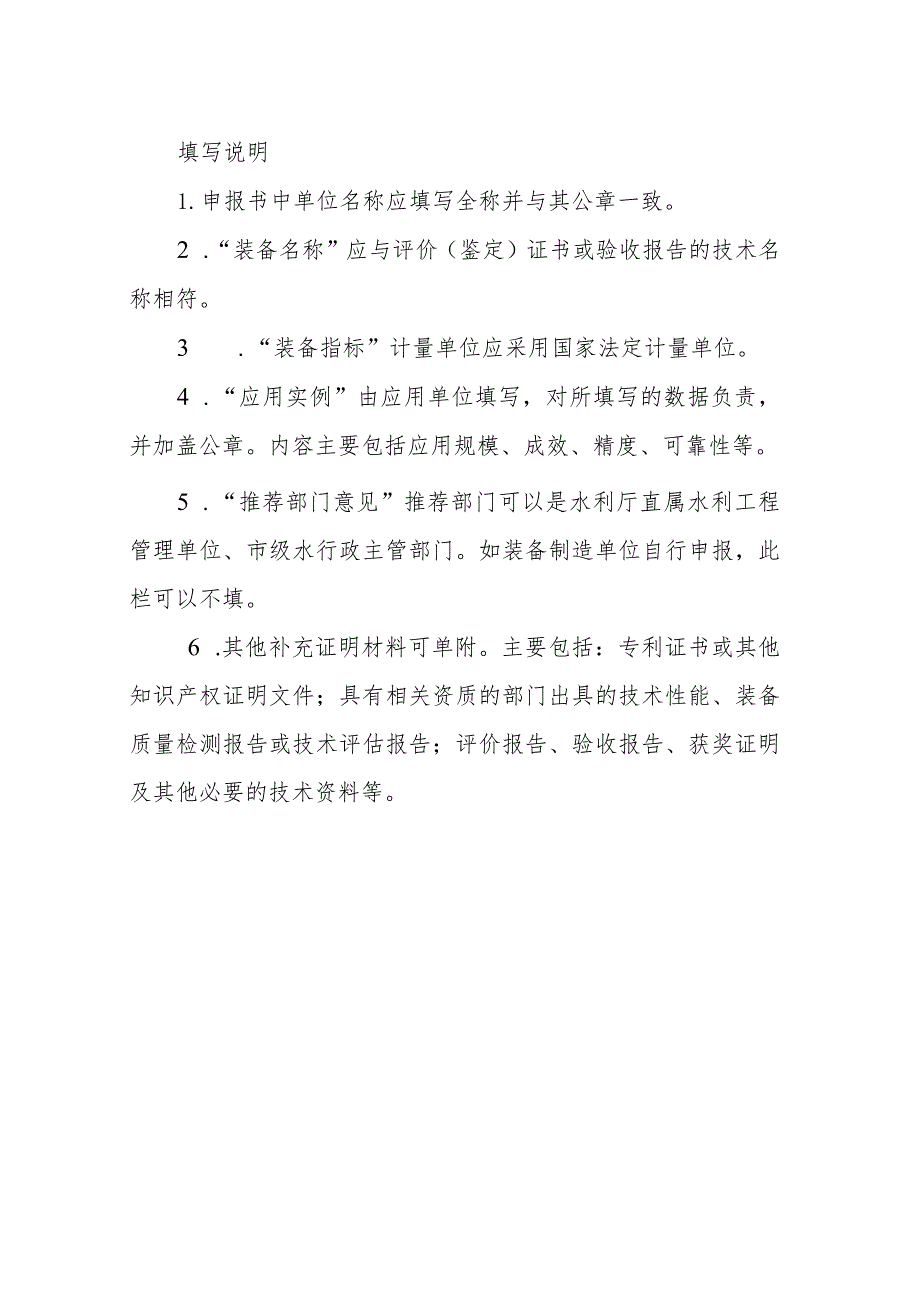 填写说明
1. 申报书中单位名称应填写全称并与其公章一致。
2 .“装备名称”应与评价（鉴定）证书或验收报告的技术名
称相符。
3 .“装备指标”计量单位应采用国家法定计量单位。
4 .“应用实例”由应用单位填写，对所填写的数据负责，
并加盖公章。内容主要包括应用规模、成效、精度、可靠性等。
5 .“推荐部门意见”推荐部门可以是水利厅直属水利工程
管理单位、市级水行政主管部门。如装备制造单位自行申报，此
栏可以不填。
6 .其他补充证明材料可单附。主要包括：专利证书或其他
知识产权证明文件；具有相关资质的部门出具的技术性能、装备
质量检测报告或技术评估报告；评价报告、验收报告、获奖证明
及其他必要的技术资料等。